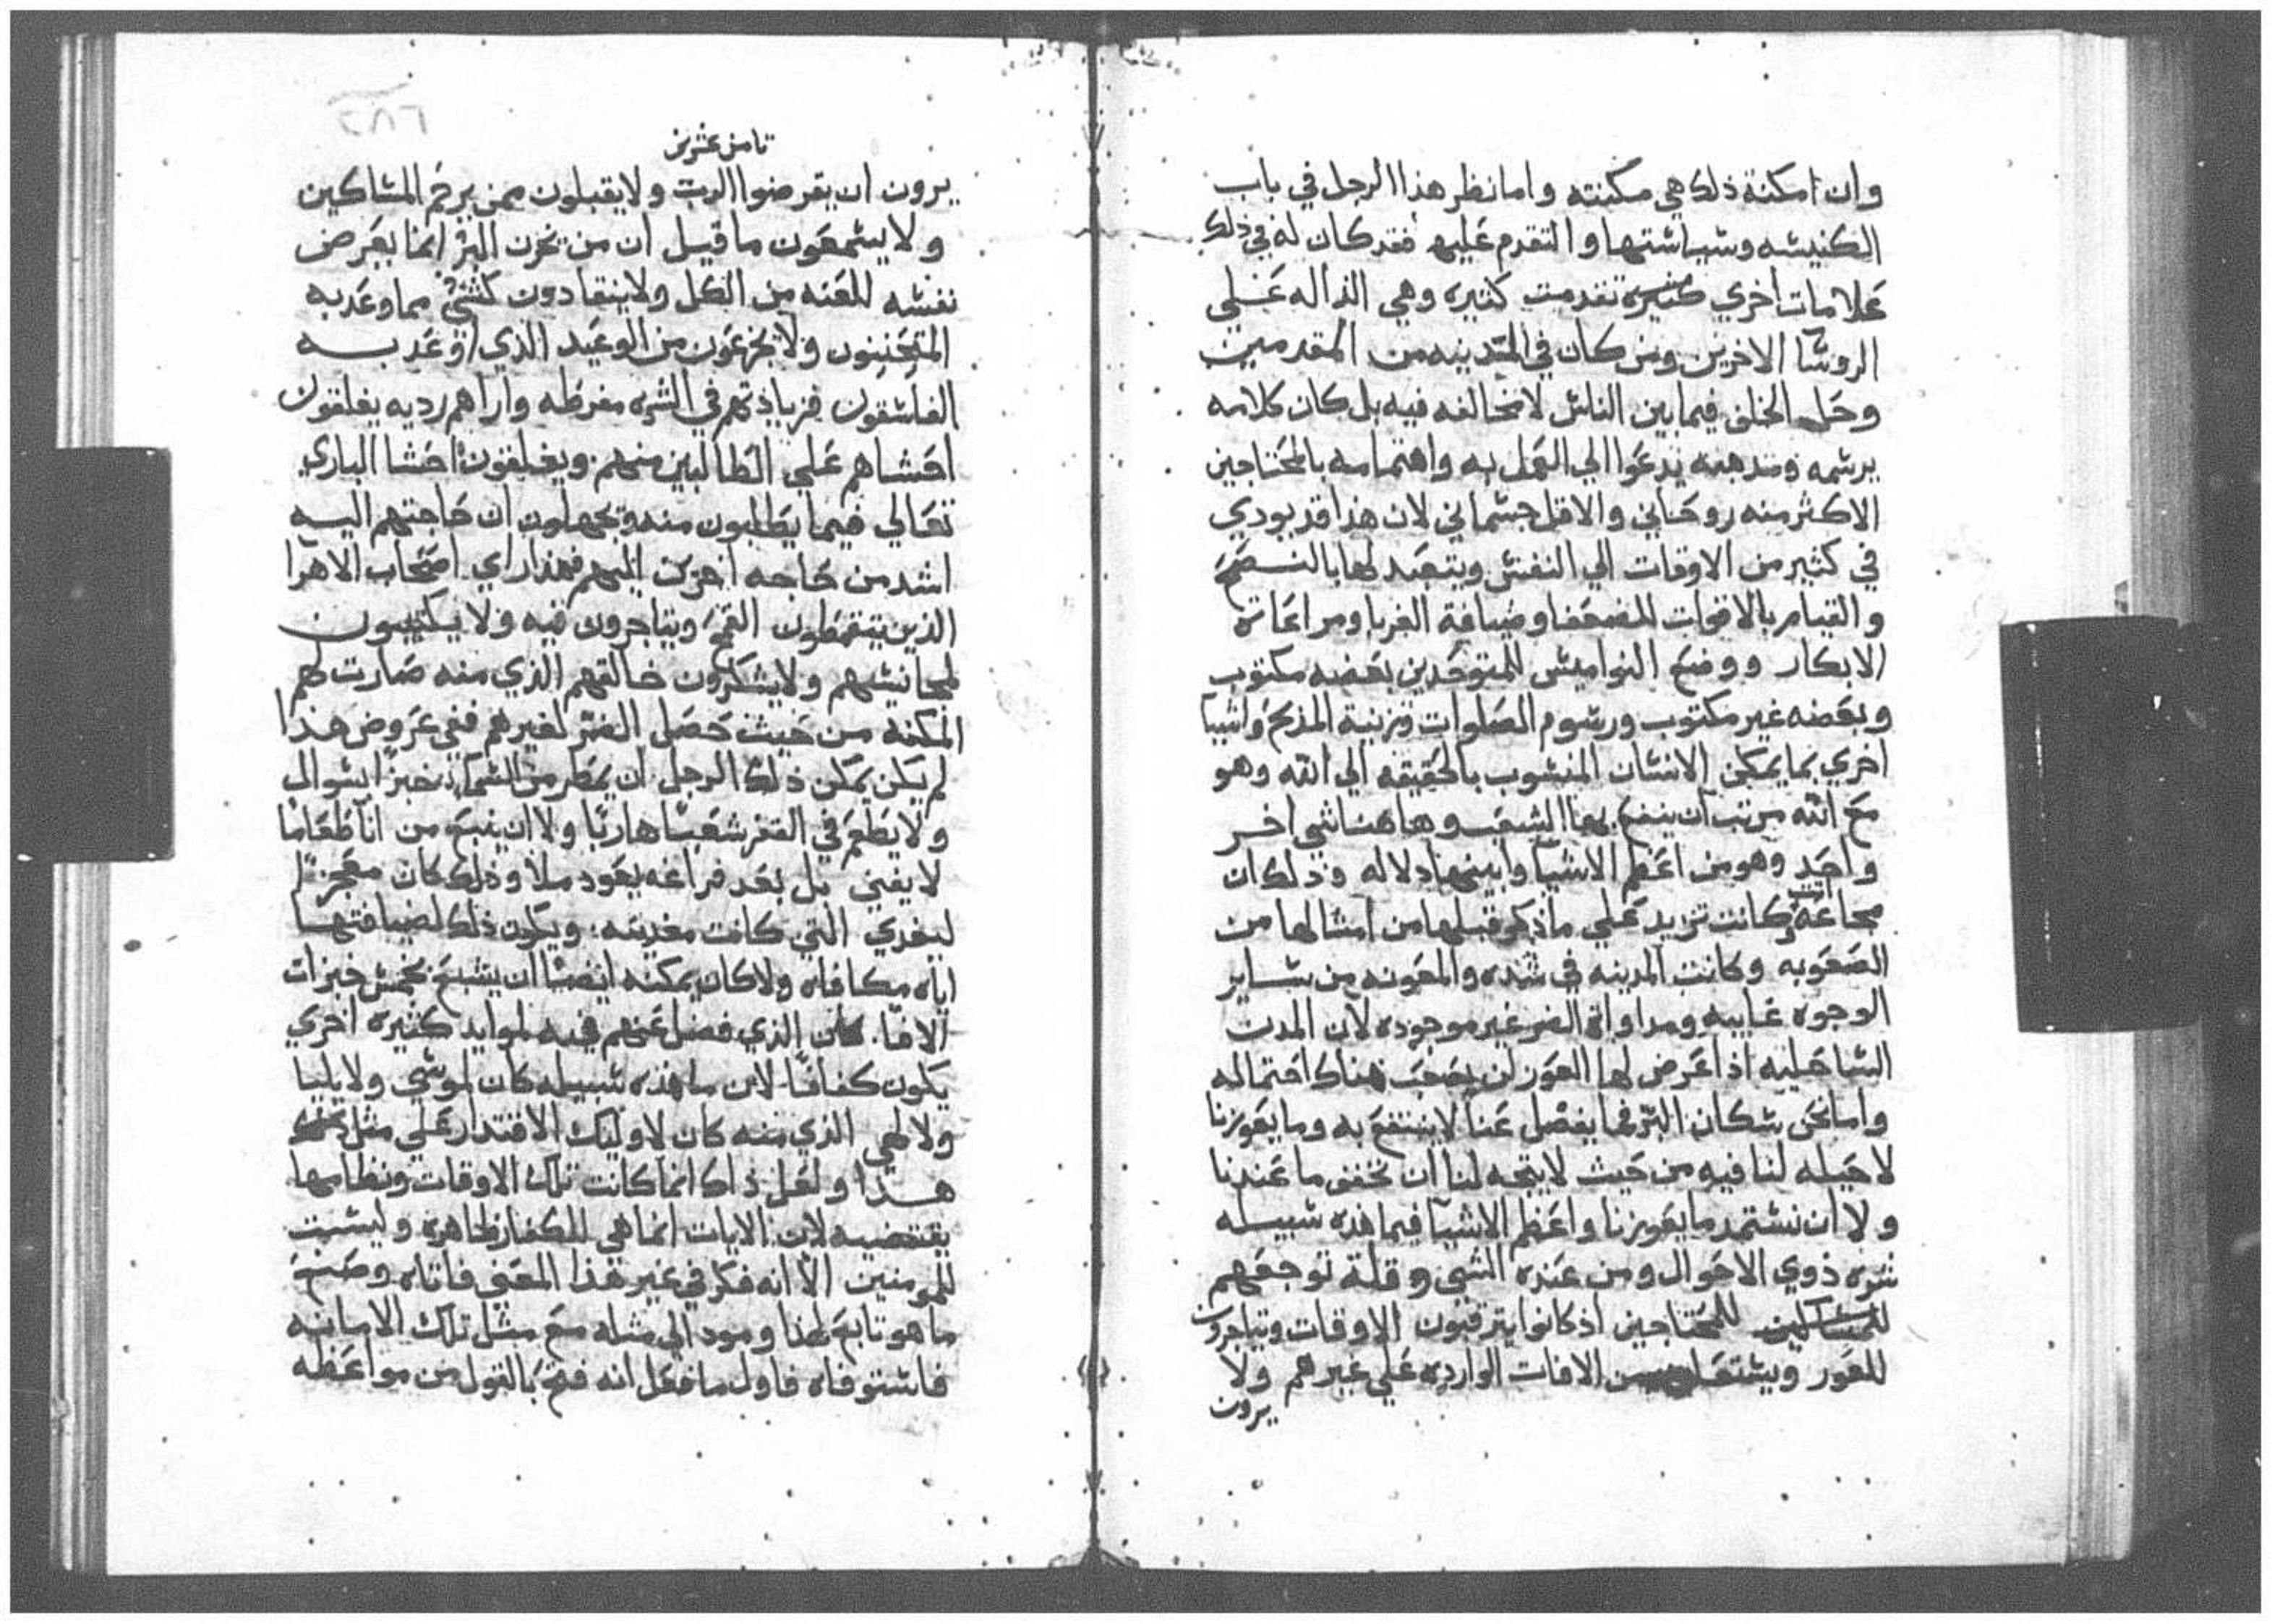 وان امكنة ذلك هي مكنته واما نظر هذا الرجل في باب
الكنيسه وسياستها والتقدم عليها فقد كان له في ذلك
علامات اخري كثيره تقدمت كثيره وهي الداله علي
الروسا الاخرين ومن كان في المدينه من المقدمين
وحل الخلف فيما بين الناس لا مخالفه فيه بل كان كلامه
برسمه ومذهبه يدعوا الي العمل به واهتمامه بالمحتاجين
الاكثر منه روحاني والاقل جسماني لان هذا قد يودي
في كثير من الاوقات الي النفس ويتعبد لها بالنسخ
والقيام بالاقوات للضعفا وضيافة الغربا ومراعاة
الابكار ووضع النواميس للمتوحدين بعضه مكتوب
وبعضه غير مكتوب ورسوم الصلوات وزينة المذبح واشيا
اخري بما يمكن الانسان المنسوب بالحقيقه الي الله وهو
مع الله مرتب ان ينفع بها الشعب وهاهنا شي اخر
واحد وهو من اعظم الاشيا وابينها دلاله وذلك ان
مجاعة كانت تزيد علي ما ذكر قبلها من امثالها من
الصعوبه وكانت المدينه في شده والمعونه من ساير
الوجوه غايبه ومداواة الضر غير موجوده لان المدن
الساحليه اذا عرض لها العوز لن يصعب هناك احتماله
واما نحن سكان البر فما يفضل عنا لا ننتفع به وما يعوزنا
لا حيله لنا فيه من حيث لا يتجه لنا ان نخفف ما عندنا
ولا ان نستمد ما يعوزنا واعظم الاشيا فيما هذه سبيله
شره ذوي الاحوال ومن عنده الشي وقلة توجعهم
للمساكين للمحتاجين اذ كانوا يترقبون الاوقات ويتاجرون
للعوز من الافات الوارده علي غيرهم ولا
يرون
٢٨٢
ثامن عشرين
يرون ان يقرضوا الرب ولا يقبلون ممن يرحم المساكين
ولا يسمعون ما قيل ان من يخزن البر انما يعرض
نفسه للعنه من الكل ولا ينقادون لشي مما وعد به
المتحننون ولا يجزعون من الوعيد الذي اوعد به
الفاسقون فزيادتهم في الشره مفرطه واراهم رديه يغلقون
احشاهم علي الطالبين منهم ويغلقون احشا الباري
تعالي فيما يطلبون منه ويجهلون ان حاجتهم اليه
اشد من حاجه اخرين اليهم فهذا راي اصحاب الاهرا
الذين القمح ويتاجرون فيه ولا يكتيبون
لمجانيسهم ولا يشكرون خالقهم الذي منه صارت لهم
المكنه من حيث حصل الضر لغيرهم ففي عروض هذا
لم يكن يمكن ذلك الرجل ان يمطر من السما خبزا بسوال
ولا يطعم في القفر شعبا هاربا ولا ان ينبع من انا طعاما
لا يفني بل بعد فراغه يعود ملا وذلك كان معجزا
ليغدي التي كانت مغديته ويكون ذلك لضيافتها
اياه مكافاه ولا كان يمكنه ايضا ان يشبع بخمس خبزات
الافا كان الذي فضل عنهم فيه لموايد كثيره اخري
يكون كفافا لان ما هذه سبيله كان لموسي ولايليا
ولالهي الذي منه كان لاوليك الاقتدار علي مثل
هذا ولعل ذلك انما كانت تلك الاوقات ونظامها
يقتضيه لان الايات انما هي للكفار ظاهره وليست
للمومنين الا انه فكر في غير هذا المعني فاتاه وصنع
ما هو تابع لهذا ومود الي مثله مع مثل تلك الامانه
فاستوفاه فاول ما فعل انه فتح بالقول من مواعظه